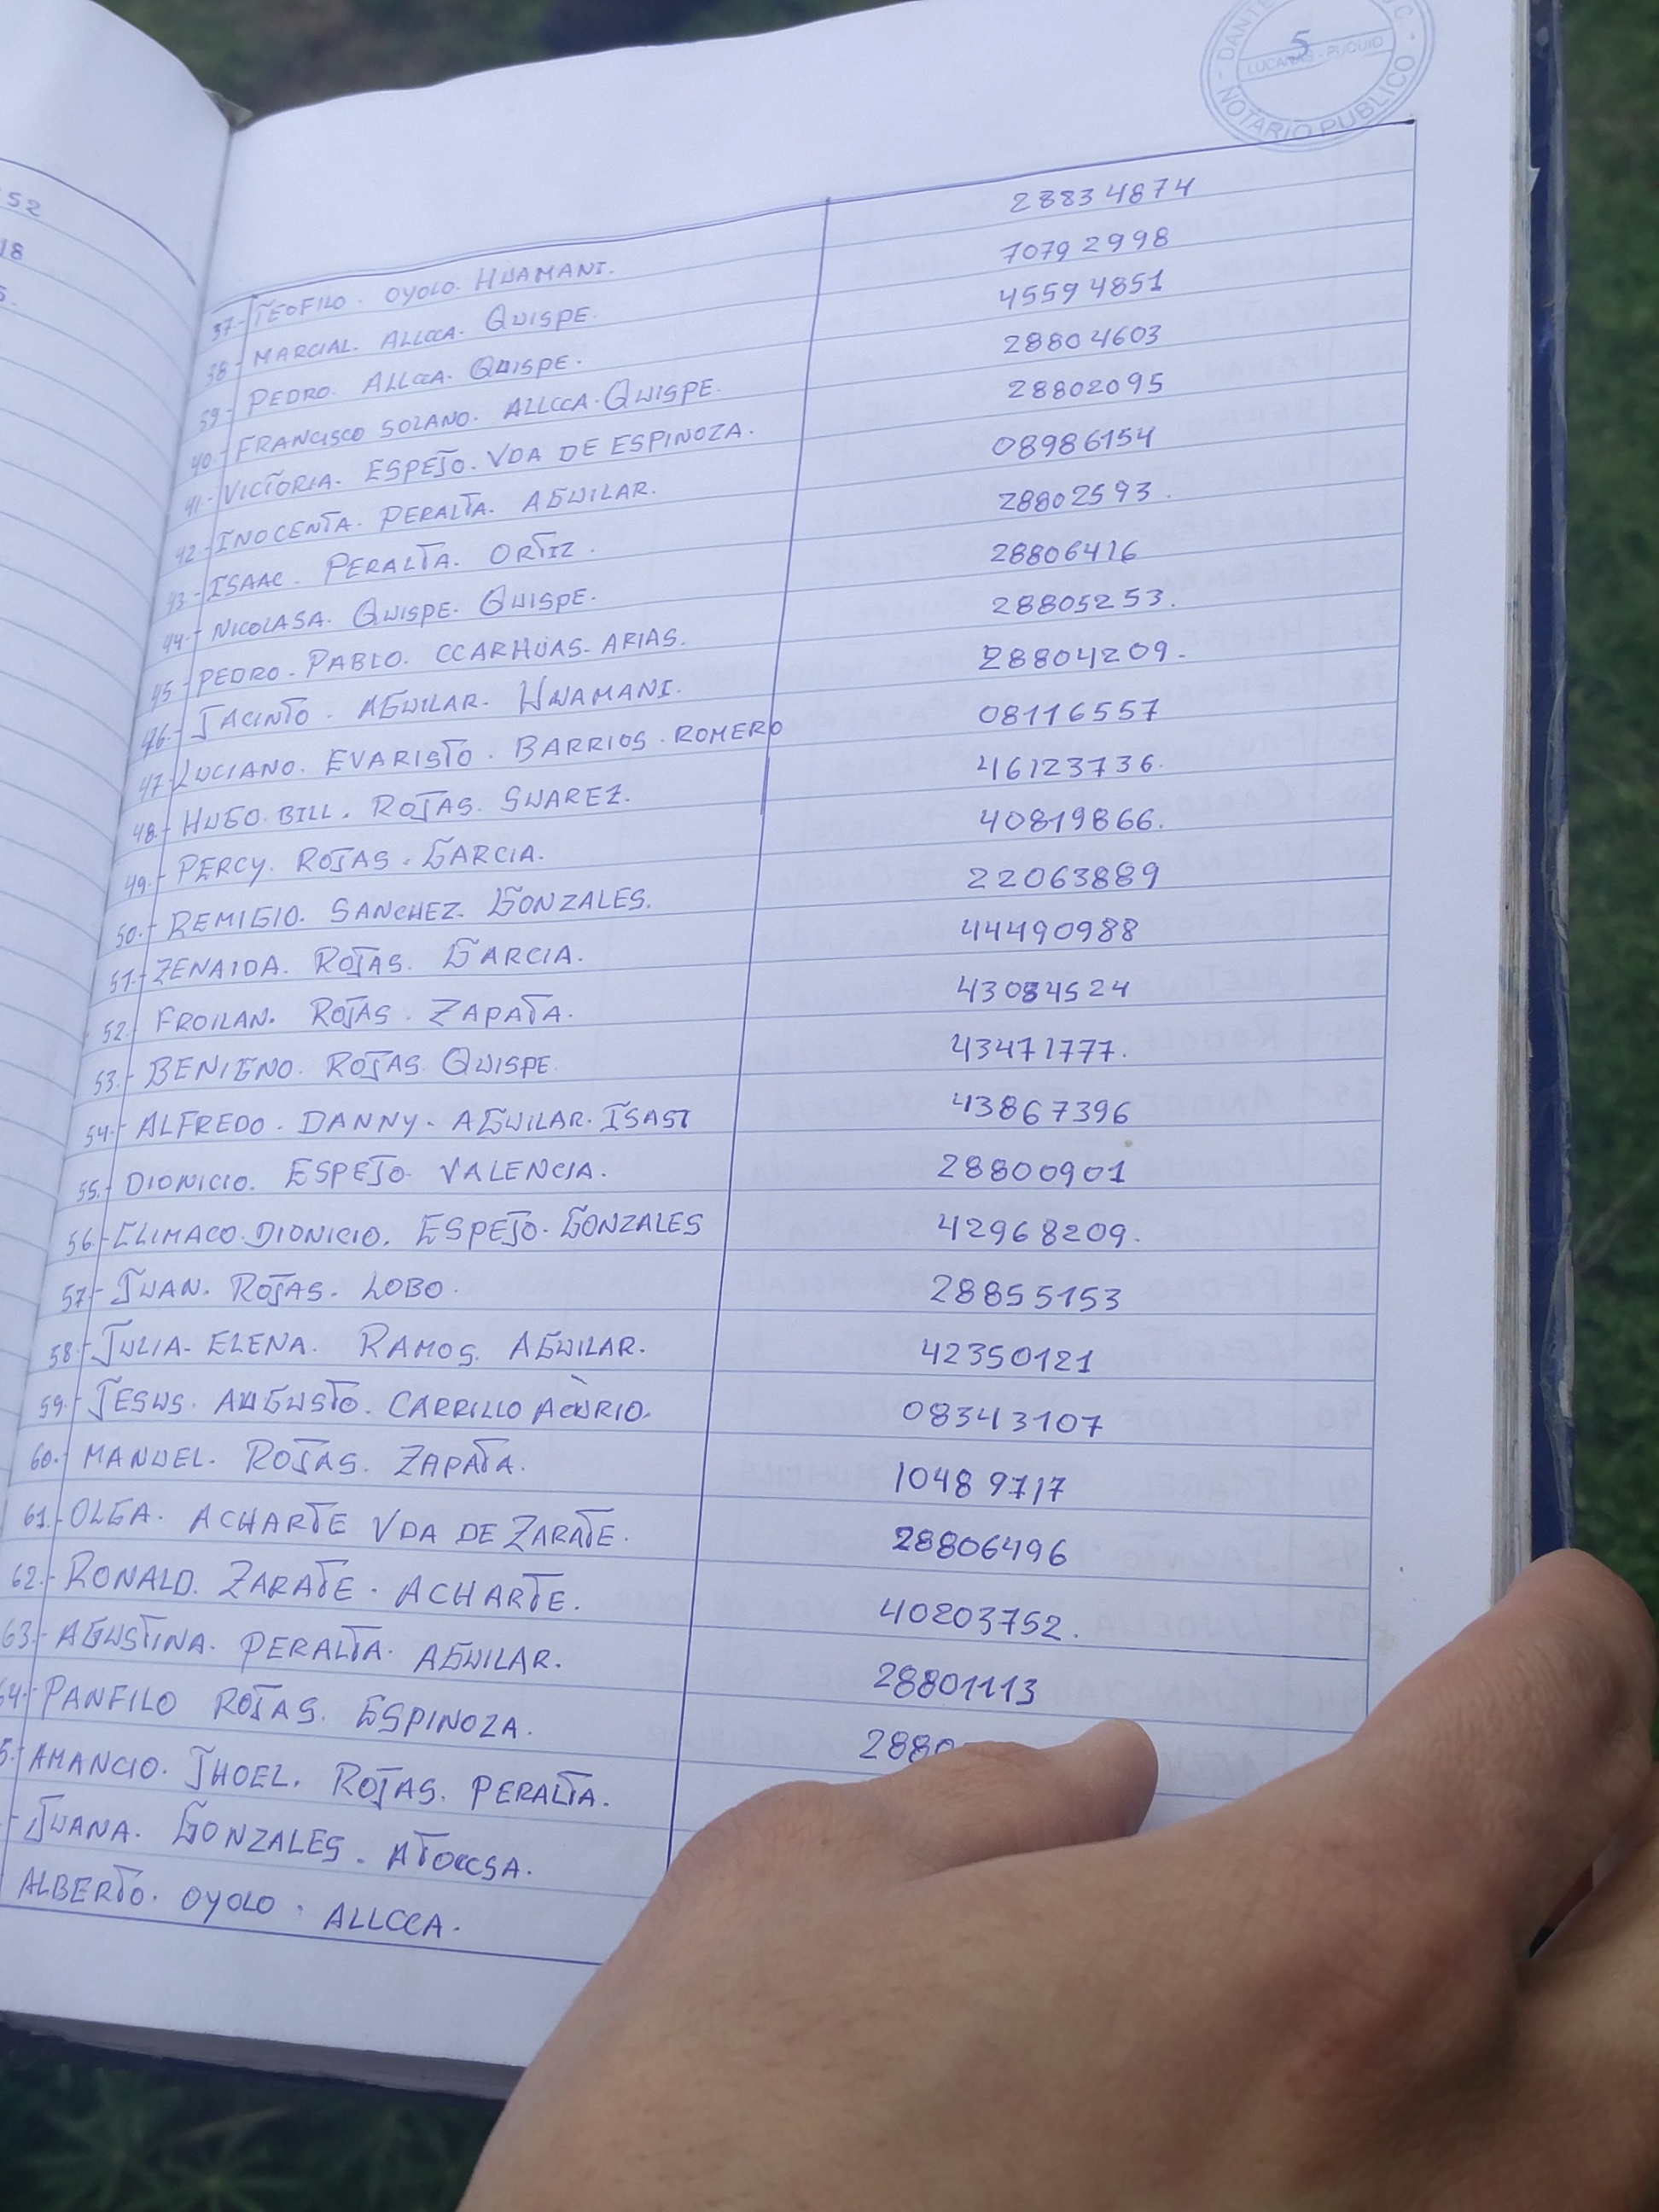 52
18
5.
DANTE
5
LUCANAS - PUQUIO
NOTARIO PUBLICO
37.- TEOFILO. OYOLO. HUAMANI. 28834874
38.- MARCIAL. ALLCCA. QUISPE. 70792998
39.- PEDRO. ALLCCA. QUISPE. 45594851
40.- FRANCISCO SOLANO. ALLCCA. QUISPE. 28804603
41.- VICTORIA. ESPEJO. VDA DE ESPINOZA. 28802095
42.- INOCENTA. PERALTA. AGUILAR. 08986154
43.- ISAAC. PERALTA. ORTIZ. 28802593.
44.- NICOLASA. QUISPE. QUISPE. 28806416
45.- PEDRO. PABLO. CCARHUAS. ARIAS. 28805253.
46.- JACINTO. AGUILAR. HUAMANI. 28804209.
47.- LUCIANO. EVARISTO. BARRIOS. ROMERO 08116557
48.- HUGO. BILL. ROJAS. SUAREZ. 46123736.
49.- PERCY. ROJAS. GARCIA. 40819866.
50.- REMIGIO. SANCHEZ. GONZALES. 22063889
51.- ZENAIDA. ROJAS. GARCIA. 44490988
52.- FROILAN. ROJAS. ZAPATA. 43084524
53.- BENIGNO. ROJAS. QUISPE 43471777.
54.- ALFREDO. DANNY. AGUILAR. ISASI 43867396
55.- DIONICIO. ESPEJO. VALENCIA. 28800901
56.- CLIMACO. DIONICIO. ESPEJO. GONZALES 42968209.
57.- JUAN. ROJAS. LOBO. 28855153
58.- JULIA. ELENA. RAMOS. AGUILAR. 42350121
59.- JESUS. AUGUSTO. CARRILLO 08343107
60.- MANUEL. ROJAS. ZAPATA. 10489717
61.- OLGA. ACHARTE VDA DE ZARATE. 28806496
62.- RONALD. ZARATE. ACHARTE. 40203752.
63.- AGUSTINA. PERALTA. AGUILAR. 28801113
64.- PANFILO ROJAS. ESPINOZA. 2880
5.- AMANCIO. JHOEL. ROJAS. PERALTA.
- JUANA. GONZALES. ATOCCSA.
ALBERTO. OYOLO. ALLCCA.